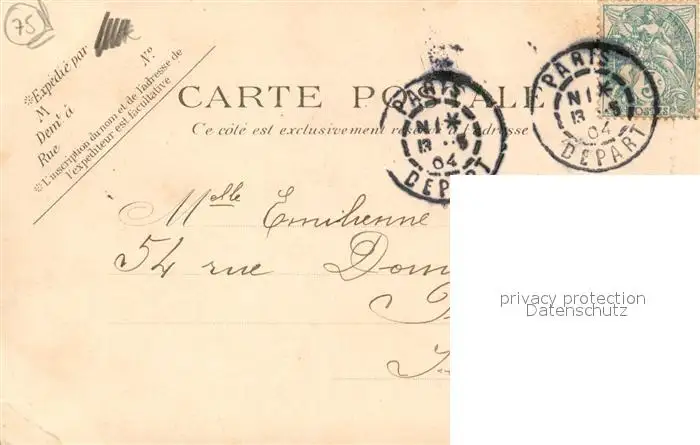 75
*Expédié par
M
Demt à
Rue N°
*L'inscription du nom et de l'adresse de
l'expéditeur est facultative
CARTE POSTALE
Ce côté est exclusivement réservé à l'adresse
PARIS
N1*
13 5
04
DEPART
PARIS
N1*
13 5
04
DEPART
POSTES
Melle Emilienne
54 rue Dom
privacy protection
Datenschutz